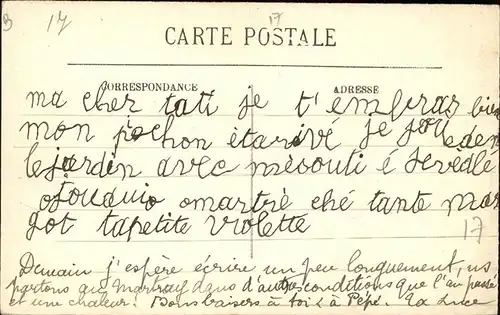 B 17
17
CARTE POSTALE
CORRESPONDANCE ADRESSE
ma cher tati je t'embras bien
mon pochon étarivé je jou den
le jardin avec mécouti é
omartrè ché tante mar
got tapetite violette
17
Demain j'espère écrire un peu longuement, ns
partons au Martray dans d'autres conditions que l'an passé
et une chaleur! Bons baisers à toi & à Pépé. Ta Luce